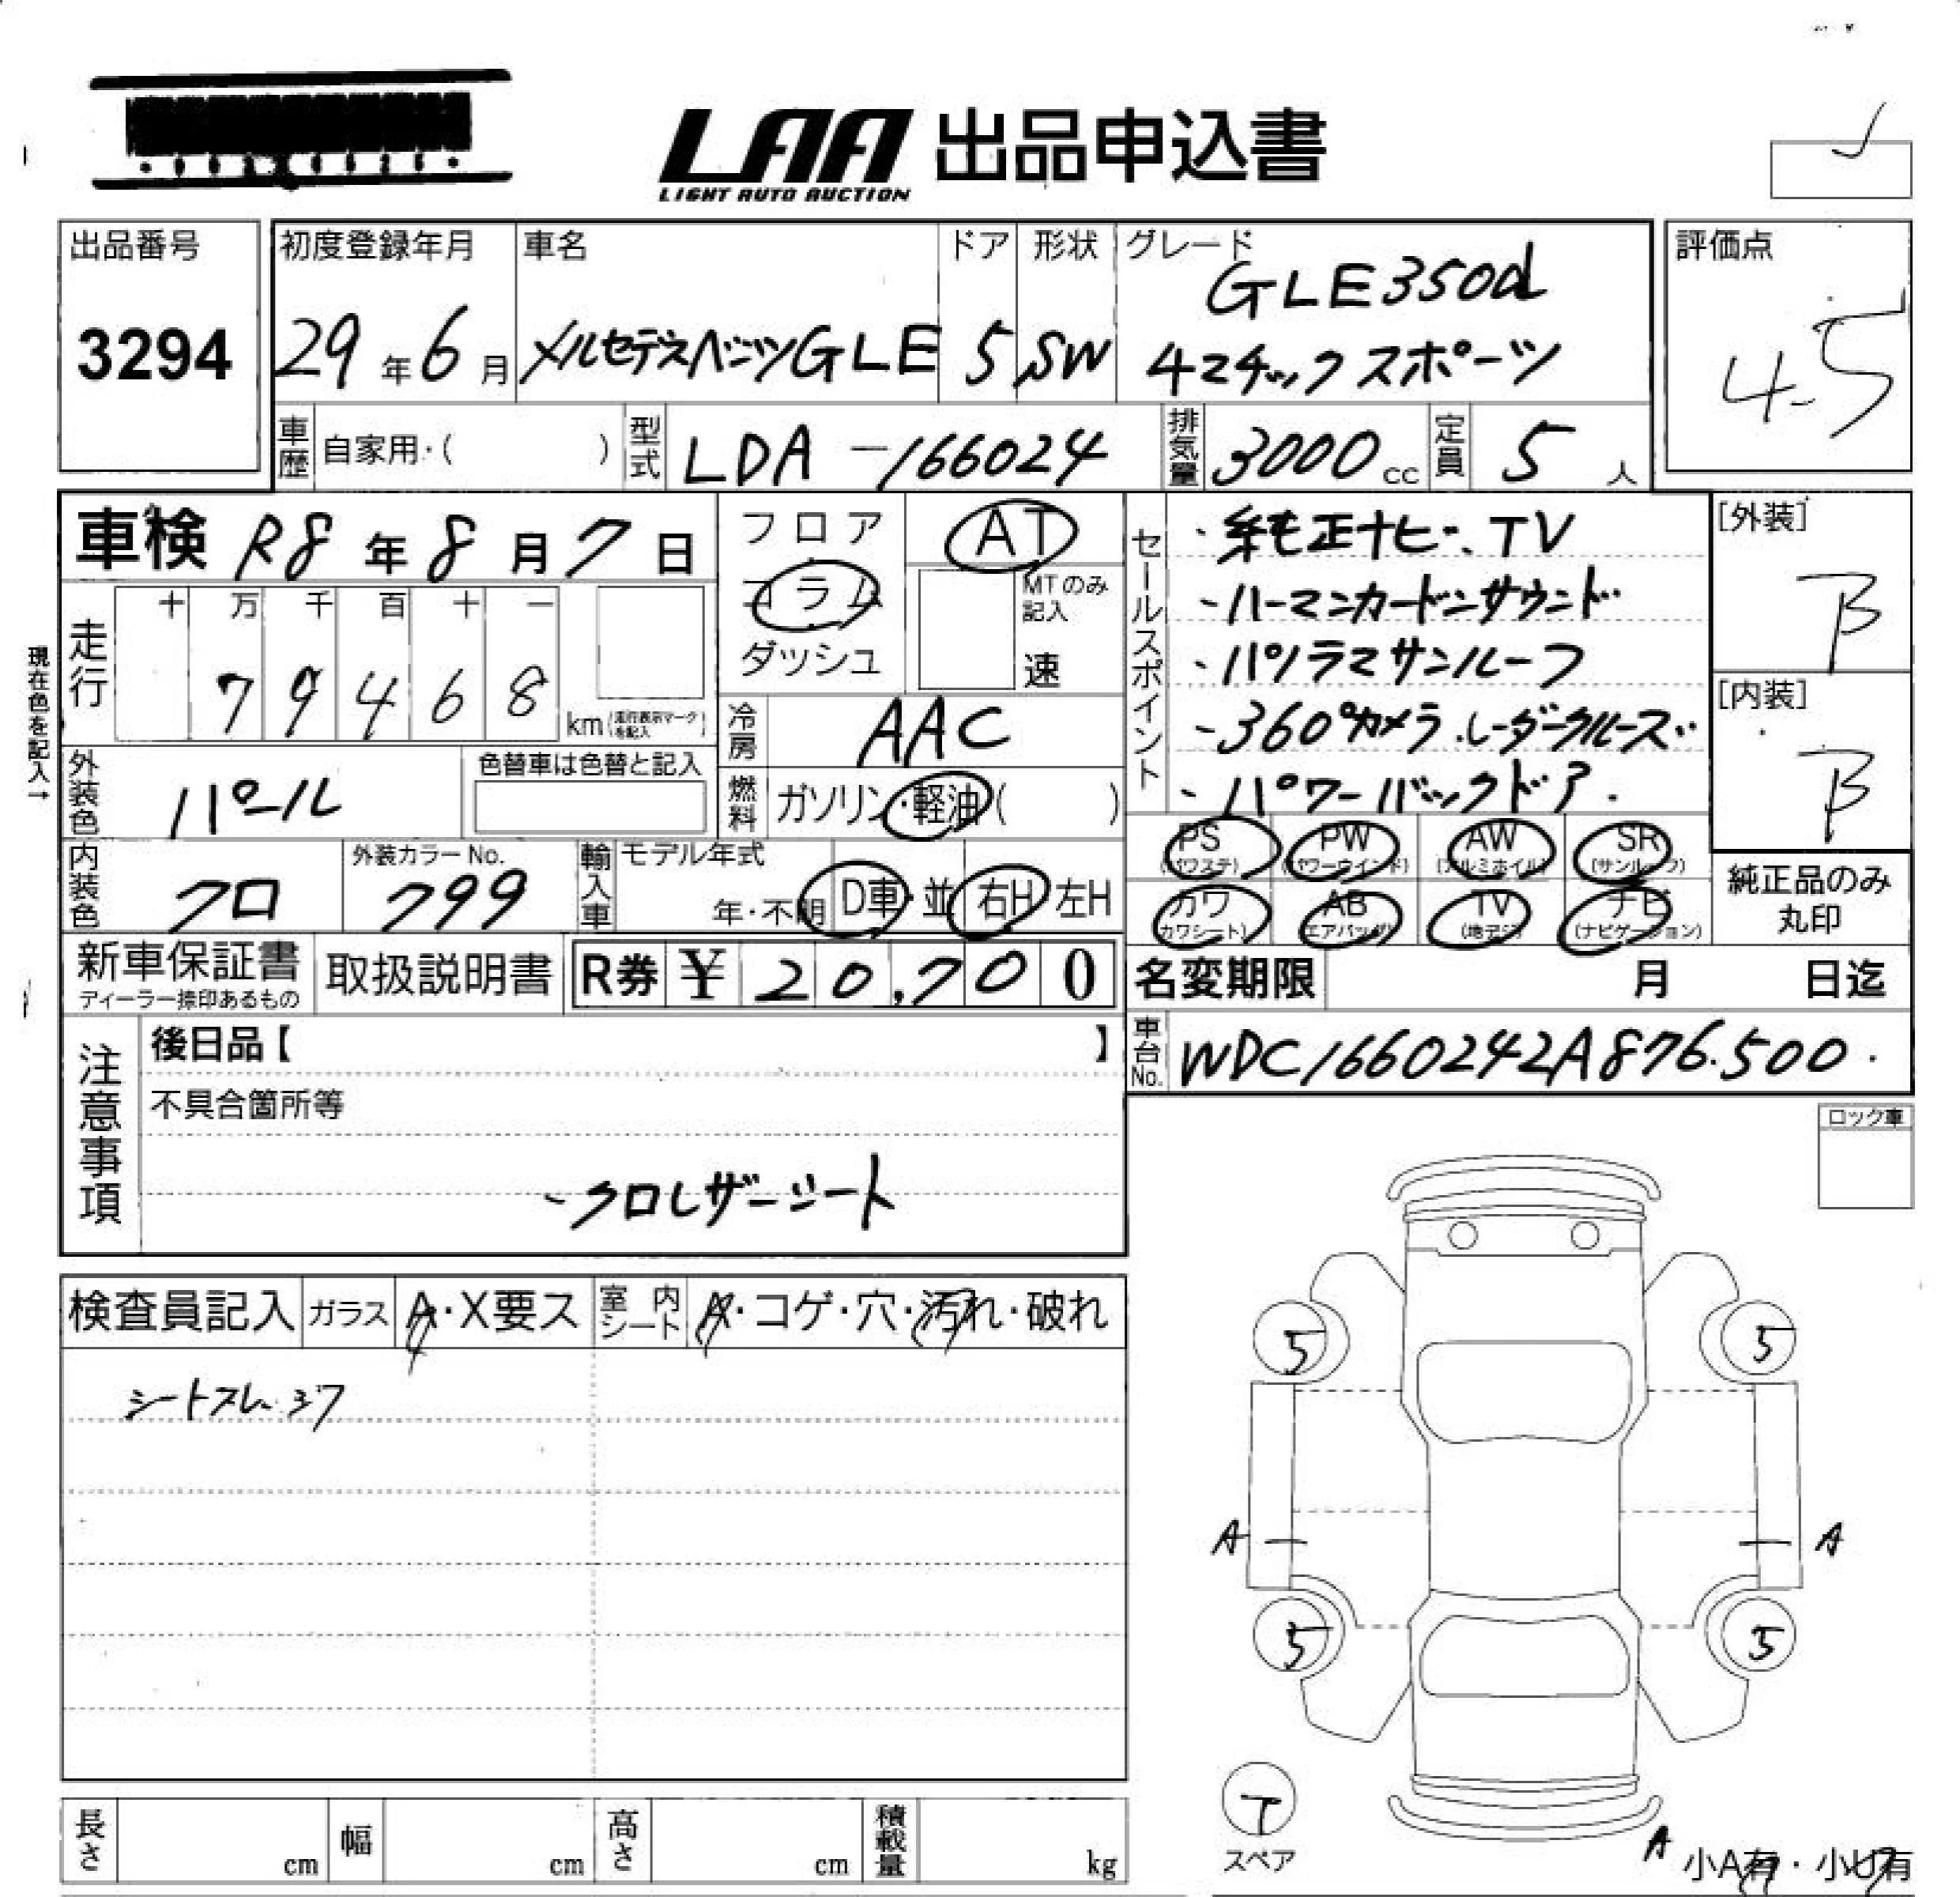 LAA 出品申込書
LIGHT AUTO AUCTION
出品番号
3294
初度登録年月
29年6月
車名
メルセデスベンツGLE
ドア
5
形状
SW
グレード
GLE350d
4マチックスポーツ
評価点
4.5
車歴 自家用・( )
型式 LDA-166024
排気量 3000cc
定員 5人
車検 R8年8月7日
フロア
コラム
ダッシュ
AT
MTのみ記入
速
セールスポイント
・純正ナビ、TV
-ハーマンカードンサウンド
-パノラマサンルーフ
-360°カメラ.レーダークルーズ
-パワーバックドア.
[外装]
B
[内装]
B
現在色を記入→
走行
十 万 千 百 十 一
7 9 4 6 8 km (走行表示マークを記入)
冷房 AAC
外装色 パール
色替車は色替と記入
燃料 ガソリン・軽油( )
内装色 クロ
外装カラーNo.
799
輸入車 モデル年式
年・不明
D車・並
右H 左H
PS (パワステ)
PW (パワーウインド)
AW (アルミホイル)
SR (サンルーフ)
カワ (カワシート)
AB (エアバッグ)
TV (地デジ)
ナビ (ナビゲーション)
純正品のみ
丸印
新車保証書
ディーラー捺印あるもの
取扱説明書
R券 ¥ 20,700
名変期限 月 日迄
車台No. WDC1660242A876500
注意事項
後日品【 】
不具合箇所等
-クロレザーシート
ロック車
検査員記入
ガラス A・X要ス
室内シート A・コゲ・穴・汚れ・破れ
シートスレ
5
5
A
A
5
5
T
スペア
A
小A有・小U有
長さ cm
幅 cm
高さ cm
積載量 kg